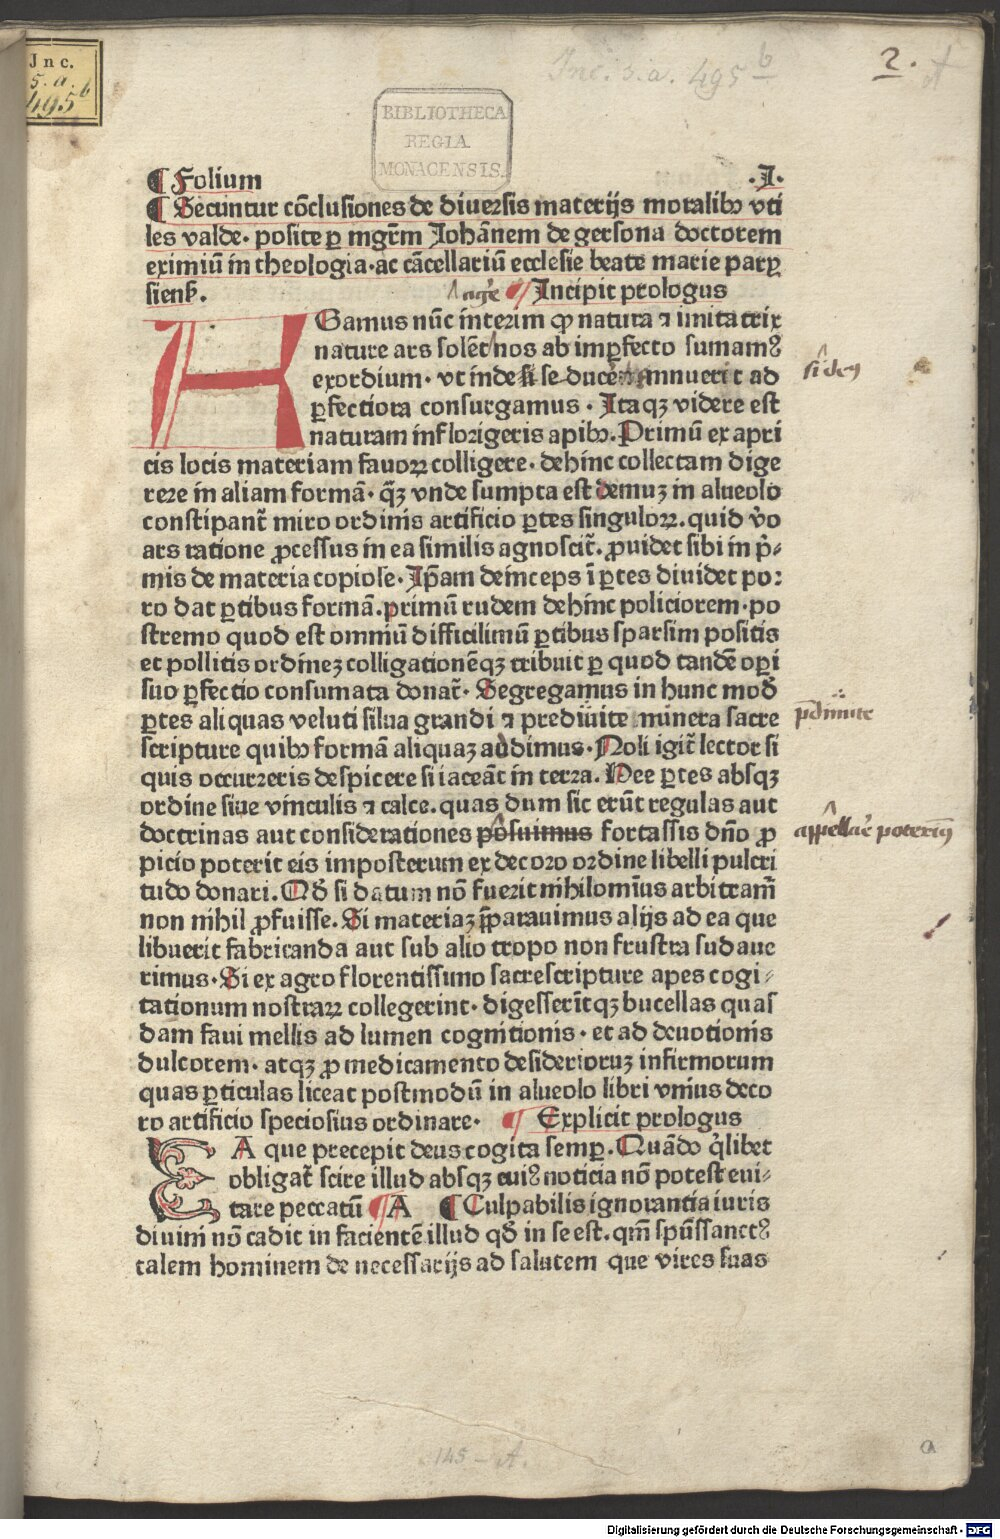 Jnc.
5. a.
495 b
Inc. 5. a. 495 b
2.
BIBLIOTHECA
REGIA
MONACENSIS.
¶ Folium .I.
¶ Secuntur cōclusiones de diuersis materijs moralibꝫ vti
les valde. posite ꝑ mgr̄m Iohānem de gersona doctorem
eximiū in theologia. ac cācellariū ecclesie beate marie pary
siensꝭ. ¶ Incipit prologus
AGamus nūc interim ꝙ natura ⁊ imitatrix
nature ars solēt nos ab imꝑfecto sumamꝰ
exordium. vt inde si se ducē annuerit ad
ꝑfectiora consurgamus. Itaqꝫ videre est
naturam in florigeris apibꝫ. Primū ex apri
cis locis materiam fauoꝝ colligere. dehinc collectam dige
rere in aliam formā. q̄ꝫ vnde sumpta est demuꝫ in alueolo
constipant̄ miro ordinis artificio ꝑtes singuloꝝ. quid v̓o
ars ratione ꝓcessus in ea similis agnoscit̄. ꝓuidet sibi in p̓-
mis de materia copiose. Ip̄am deinceps ī ꝑtes diuidet po:
ro dat ꝑtibus formā. primū rudem dehinc policiorem. po
stremo quod est omniū difficilimū ꝑtibus sparsim positis
et pollitis ordineꝫ colligationēqꝫ tribuit ꝑ quod tandē oꝑi
suo ꝑfectio consumata donat̄. Segregamus in hunc mod̄
ꝑtes aliquas veluti silua grandi ⁊ prediuite minera sacre
scripture quibꝫ formā aliquaꝫ addimus. Noli igit̄ lector si
quis occurreris despicere si iaceāt in terra. Hee ꝑtes absqꝫ
ordine siue vinculis ⁊ calce. quas dum sic erūt regulas aut
doctrinas aut considerationes posuimus fortassis dn̄o ꝓ
picio poterit eis imposterum ex decoro ordine libelli pulcri
tudo donari. Qd̄ si datum nō fuerit nihilomīus arbitram̄
non nihil ꝓfuisse. Si materiaꝫ p̄parauimus alijs ad ea que
libuerit fabricanda aut sub alio tropo non frustra sudaue
rimus. Si ex agro florentissimo sacre scripture apes cogi-
tationum nostraꝝ collegerint. digesserītqꝫ bucellas quas
dam faui mellis ad lumen cognitionis. et ad deuotionis
dulcorem. atqꝫ ꝓ medicamento desiderioruꝫ infirmorum
quas ꝑticulas liceat postmodū in alueolo libri vnius deco
ro artificio speciosius ordinare. ¶ Explicit prologus
EA que precepit deus cogita semꝑ. Quādo q̓libet
obligat̄ scire illud absqꝫ cuiꝰ noticia nō potest eui-
tare peccatū ¶ A ¶ Culpabilis ignorantia iuris
diuini nō cadit in facientē illud qd̄ in se est. qm̄ spūssanctꝰ
talem hominem de necessarijs ad salutem que vires suas
145 - A.
a
Digitalisierung gefördert durch die Deutsche Forschungsgemeinschaft - DFG